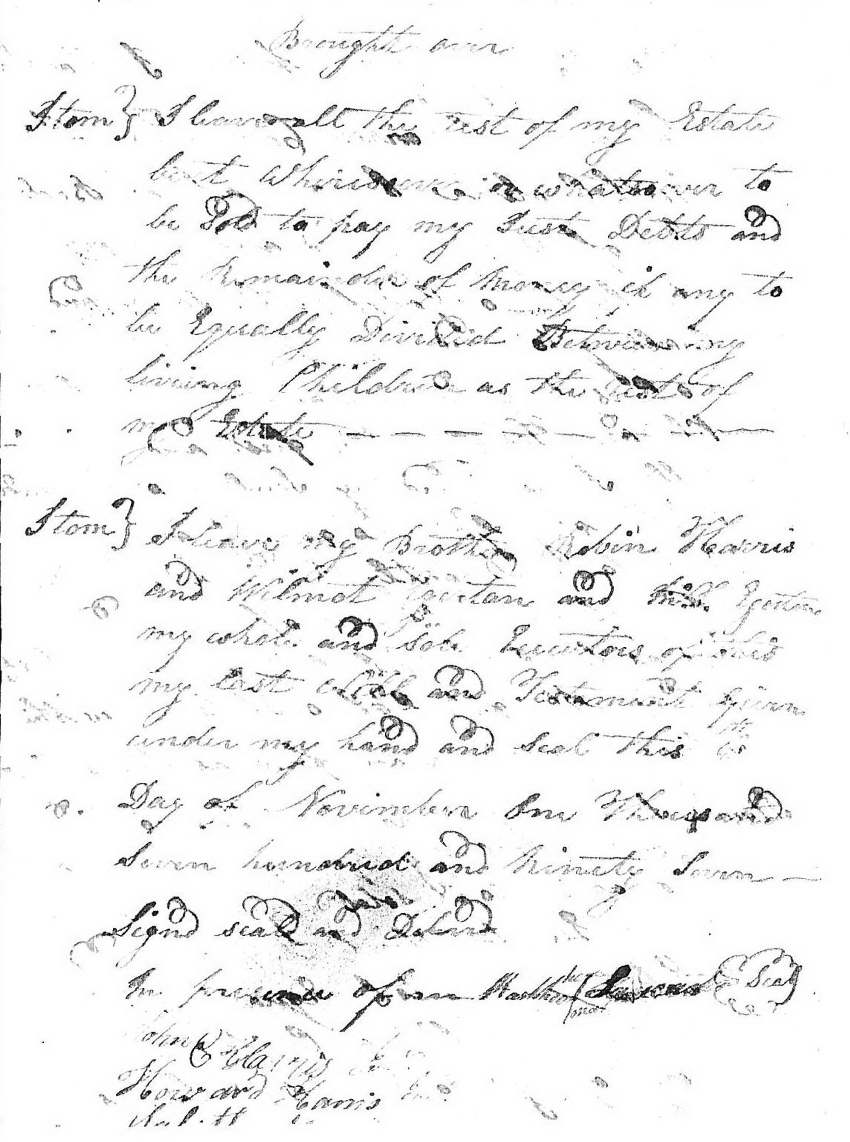 Brought over
Item} I leave all the rest of my Estate
be it Whersoever or whatsoever to
be Sold to pay my Just Debts and
the Remainder of Money if any to
be Equally Divided Between my
living Children as the rest of
my Estate — — — — — — —
Item} I leave my Brother Robin Harris
and Wilmot and
my whole and Sole Executors of this
my last will and Testament Given
under my hand and Seal this
Day of November One Thousand
Seven hundred and Ninety Seven —
Signd seald and
In presence of her Seal
John Harris
Howard Harris